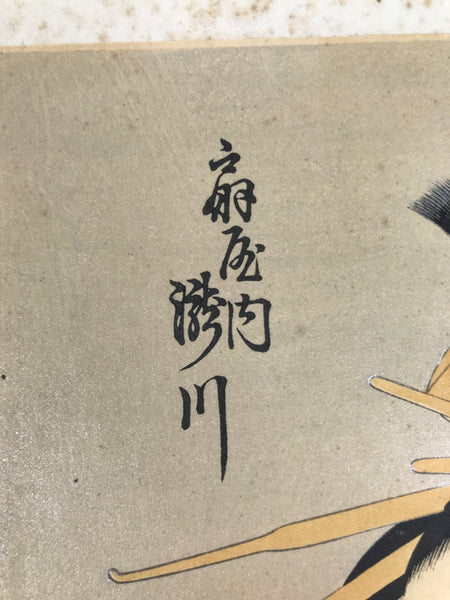 扇屋内
瀧川